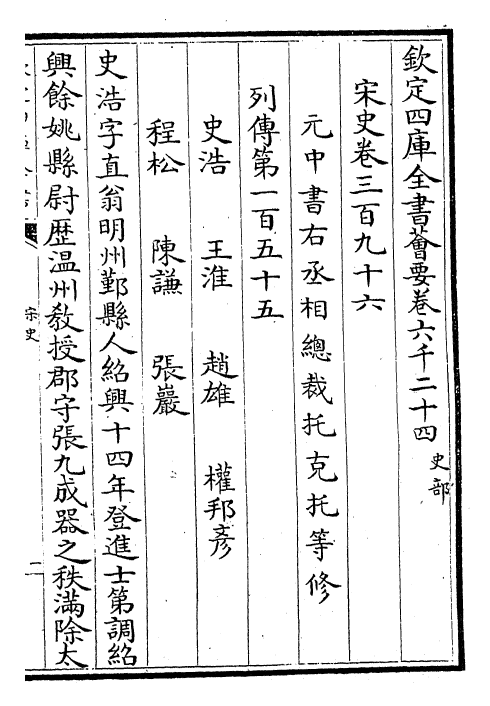 欽定四庫全書薈要卷六千二十四 史部
宋史卷三百九十六
元中書右丞相總裁托克托等修
列傳第一百五十五
史浩 王淮 趙雄 權邦彥
程松 陳謙 張巖
史浩字直翁明州鄞縣人紹興十四年登進士第調紹
興餘姚縣尉歷温州敎授郡守張九成器之秩滿除太
宋史